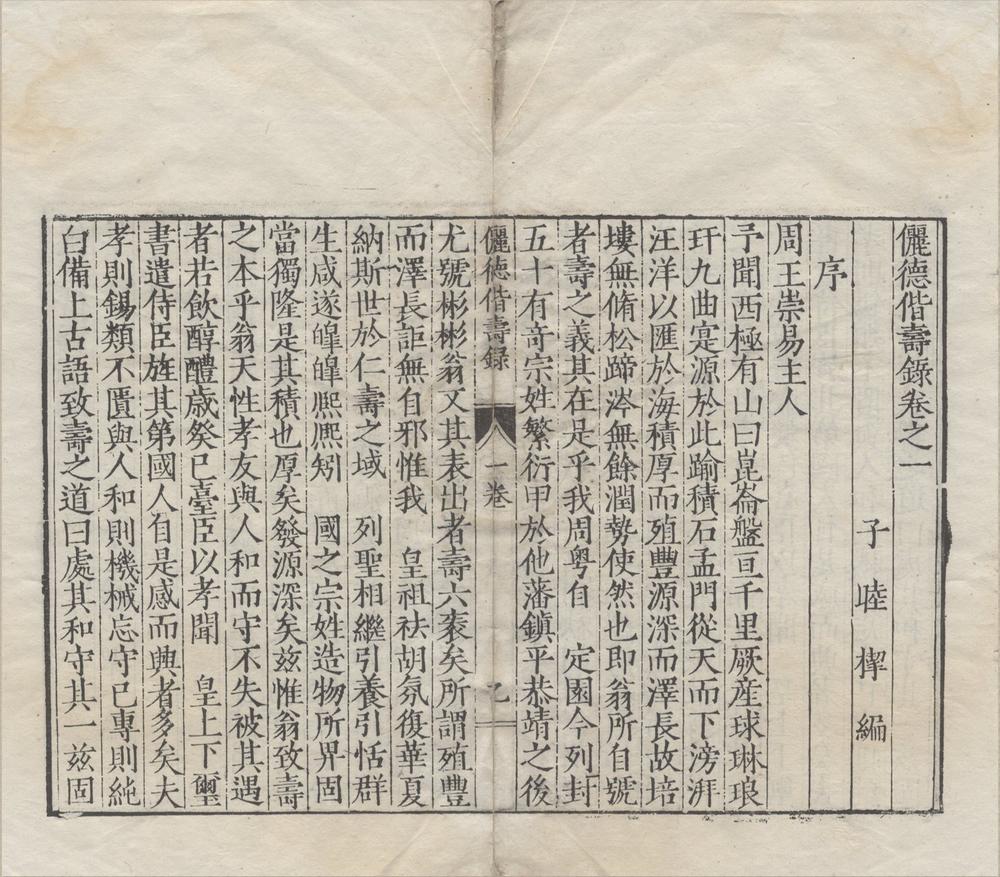 儷德偕壽錄卷之一
子睦㰂編
序
周王崇易主人
予聞西極有山曰崑崙盤亘千里厥産球琳琅
玕九曲寔源於此踰積石孟門從天而下滂湃
汪洋以匯於海積厚而殖豐源深而澤長故培
塿無脩松蹄涔無餘潤勢使然也即翁所自號
者壽之義其在是乎我周粤自　定園今列封
五十有竒宗姓繁衍甲於他藩鎮平恭靖之後
儷德偕壽錄　一卷　乙
尤號彬彬翁又其表出者壽六袠矣所謂殖豐
而澤長詎無自邪惟我　皇祖袪胡氛復華夏
納斯世於仁壽之域　列聖相繼引養引恬群
生咸遂皥皥熈熈矧　國之宗姓造物所畀固
當獨隆是其積也厚矣發源深矣兹惟翁致壽
之本乎翁天性孝友與人和而守不失被其遇
者若飲醇醴歳癸巳臺臣以孝聞　皇上下璽
書遣侍臣旌其第國人自是感而興者多矣夫
孝則錫類不匱與人和則機械忘守己專則純
白備上古語致壽之道曰處其和守其一兹固